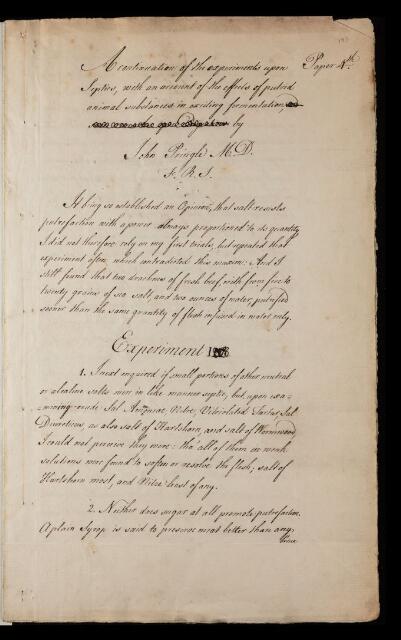 A continuation of the experiments upon
Paper 4th
Septics, with an account of the effects of putrid
animal substances in exciting fermentation
by
John Pringle M.D.
F. R. S.
It being so established an Opinion, that salt resists
putrefaction with a power always proportioned to its quantity
I did not therefore rely on my first trials, but repeated that
experiment often which contradicted this maxim: And I
still found that two drachms of fresh beef, with from five to
twenty grains of sea salt, and two ounces of water, putrified
sooner than the same quantity of flesh infused in water only.
Experiment
1. I next enquired if small portions of other neutral
or alcaline salts were in like manner septic, but upon exa-
-mining crude Sal Ammoniac, Nitre, Vitriolated Tartar, Sal
Diureticus, as also salt of Hartshorn, and salt of Wormwood
I could not perceive they were: tho' all of them in weak
solutions were found to soften or resolve the flesh; salt of
Hartshorn most, and Nitre least of any.
2. Neither does sugar at all promote putrefaction.
A plain Syrop is said to preserve meat better than any